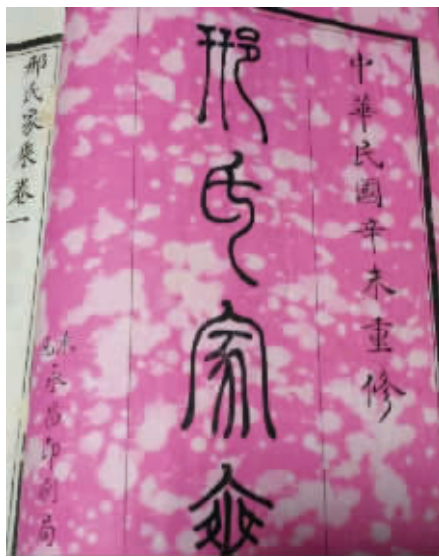 中華民國辛未重修
邢氏家乘
承印刷局
邢氏家乘卷一